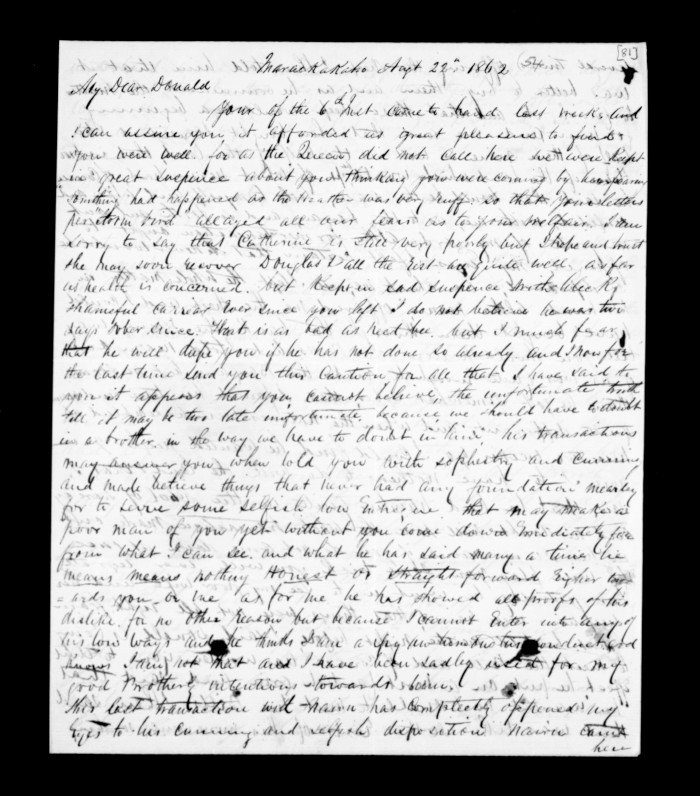 [81]
Maraekakaho Augt 22nd 1862 (54)
My Dear Donald
Your of the 6th inst came to hand last week and
I can assure you it afforded as great pleasure to find
you were well for as the Queen did not call here we were kept
in great suspence about you thinking you were coming by her
something had happened as the weather was very ruff so that your letters
per Storm bird allayed all our fears as to your welfair, I am
sorry to say that Catherine is still very poorly but I hope and trust
she may soon recover Douglas & all the rest are quite well as far
as health is concerned. but kept in sad suspence
shameful carrier Ever since you left I do not believe he was two
days sober since. that is as bad as need bee. but I much fear
that he will dupe you if he has not done so already and I now for
the last time send you this caution for all that I have said to
you it appears that you cannot believe the unfortunate truth
till it may be too late unfortunate, because we should have to doubt
in a brother in the way we have to doubt in him, his transactions
may answer you when told you with sophestry and cunning
and made believe things that never had any foundation mearly
for to serve some selfish low Entrigue, that may make a
poor man of you yet without you come down Imediately for
from what I can see and what he has said many a time he
means means nothing Honest or Straight forward Eigher tow
=ards you or me as for me he has showed all proofs of his
dislike for no other reason but because I cannot Enter into any of
his low ways and he thinks I am a spy on his conduct God
knows I am not that and I have been sadley for my
good Brotherly intentions towards him,
this last transaction with Nairn has completly oppened my
Eyes to his cunning and selfish disposition Nairn came
here